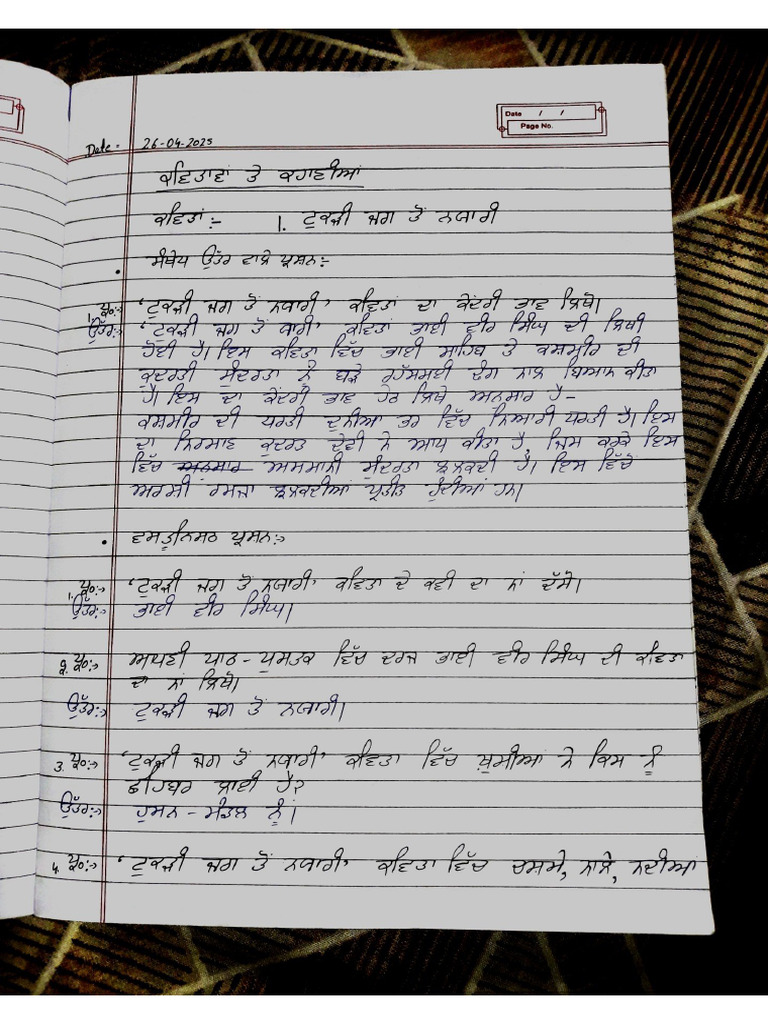 Date / /
Page No.
Date - 26-04-2025
ਕਵਿਤਾਵਾਂ ਤੇ ਕਹਾਣੀਆਂ
ਕਵਿਤਾਂ:- 1. ਟੁਕੜੀ ਜਗ ਤੋਂ ਨਯਾਰੀ
• ਸੰਖੇਪ ਉੱਤਰ ਵਾਲੇ ਪ੍ਰਸ਼ਨ:-
1. ਪ੍ਰ:- 'ਟੁਕੜੀ ਜਗ ਤੋਂ ਨਯਾਰੀ' ਕਵਿਤਾਂ ਦਾ ਕੇਂਦਰੀ ਭਾਵ ਲਿਖੋ।
ਉੱਤਰ:- 'ਟੁਕੜੀ ਜਗ ਤੋਂ ਯਾਰੀ' ਕਵਿਤਾਂ ਭਾਈ ਵੀਰ ਸਿੰਘ ਦੀ ਲਿਖੀ
ਹੋਈ ਹੈ। ਇਸ ਕਵਿਤਾ ਵਿੱਚ ਭਾਈ ਸਾਹਿਬ ਤੇ ਕਸ਼ਮੀਰ ਦੀ
ਕੁਦਰਤੀ ਸੁੰਦਰਤਾ ਨੂੰ ਬੜੇ ਰਹੱਸਮਈ ਢੰਗ ਨਾਲ ਬਿਆਨ ਕੀਤਾ
ਹੈ। ਇਸ ਦਾ ਕੇਂਦਰੀ ਭਾਵ ਹੇਠ ਲਿਖੇ ਅਨਸਾਰ ਹੈ-
ਕਸ਼ਮੀਰ ਦੀ ਧਰਤੀ ਦੁਨੀਆ ਭਰ ਵਿੱਚ ਨਿਆਰੀ ਧਰਤੀ ਹੈ। ਇਸ
ਦਾ ਨਿਰਮਾਣ ਕੁਦਰਤ ਦੇਵੀ ਨੇ ਆਪ ਕੀਤਾ ਹੈ, ਜਿਸ ਕਰਕੇ ਇਸ
ਵਿੱਚ ਅਸਮਾਨੀ ਸੁੰਦਰਤਾ ਝਲਕਦੀ ਹੈ। ਇਸ ਵਿੱਚੋਂ
ਅਰਸ਼ੀ ਰਮਜਾ ਝਲਕਦੀਆਂ ਪ੍ਰਤੀਤ ਹੁੰਦੀਆਂ ਹਨ।
• ਵਸਤੂਨਿਸਠ ਪ੍ਰਸ਼ਨ:-
1. ਪ੍ਰ:- 'ਟੁਕੜੀ ਜਗ ਤੋਂ ਨਯਾਰੀ' ਕਵਿਤਾ ਦੇ ਕਵੀ ਦਾ ਨਾਂ ਦੱਸੋ।
ਉੱਤਰ:- ਭਾਈ ਵੀਰ ਸਿੰਘ।
2. ਪ੍ਰ:- ਆਪਣੀ ਪਾਠ-ਪੁਸਤਕ ਵਿੱਚ ਦਰਜ ਭਾਈ ਵੀਰ ਸਿੰਘ ਦੀ ਕਵਿਤਾ
ਦਾ ਨਾਂ ਲਿਖੋ।
ਉੱਤਰ:- ਟੁਕੜੀ ਜਗ ਤੋਂ ਨਯਾਰੀ।
3. ਪ੍ਰ:- 'ਟੁਕੜੀ ਜਗ ਤੋਂ ਨਯਾਰੀ' ਕਵਿਤਾ ਵਿੱਚ ਖੁਸ਼ੀਆਂ ਨੇ ਕਿਸ ਨੂੰ
ਛਹਿਬਰ ਲਾਈ ਹੈ?
ਉੱਤਰ:- ਹੁਸਨ-ਮੰਡਲ ਨੂੰ।
4. ਪ੍ਰ:- 'ਟੁਕੜੀ ਜਗ ਤੋਂ ਨਯਾਰੀ' ਕਵਿਤਾ ਵਿੱਚ ਚਸ਼ਮੇ, ਨਾਲੇ, ਨਦੀਆਂ